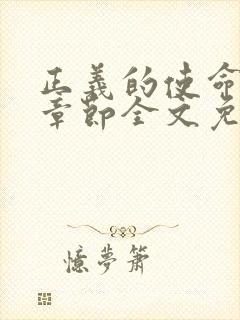 正義的使命
章節全文免
憶夢蕭